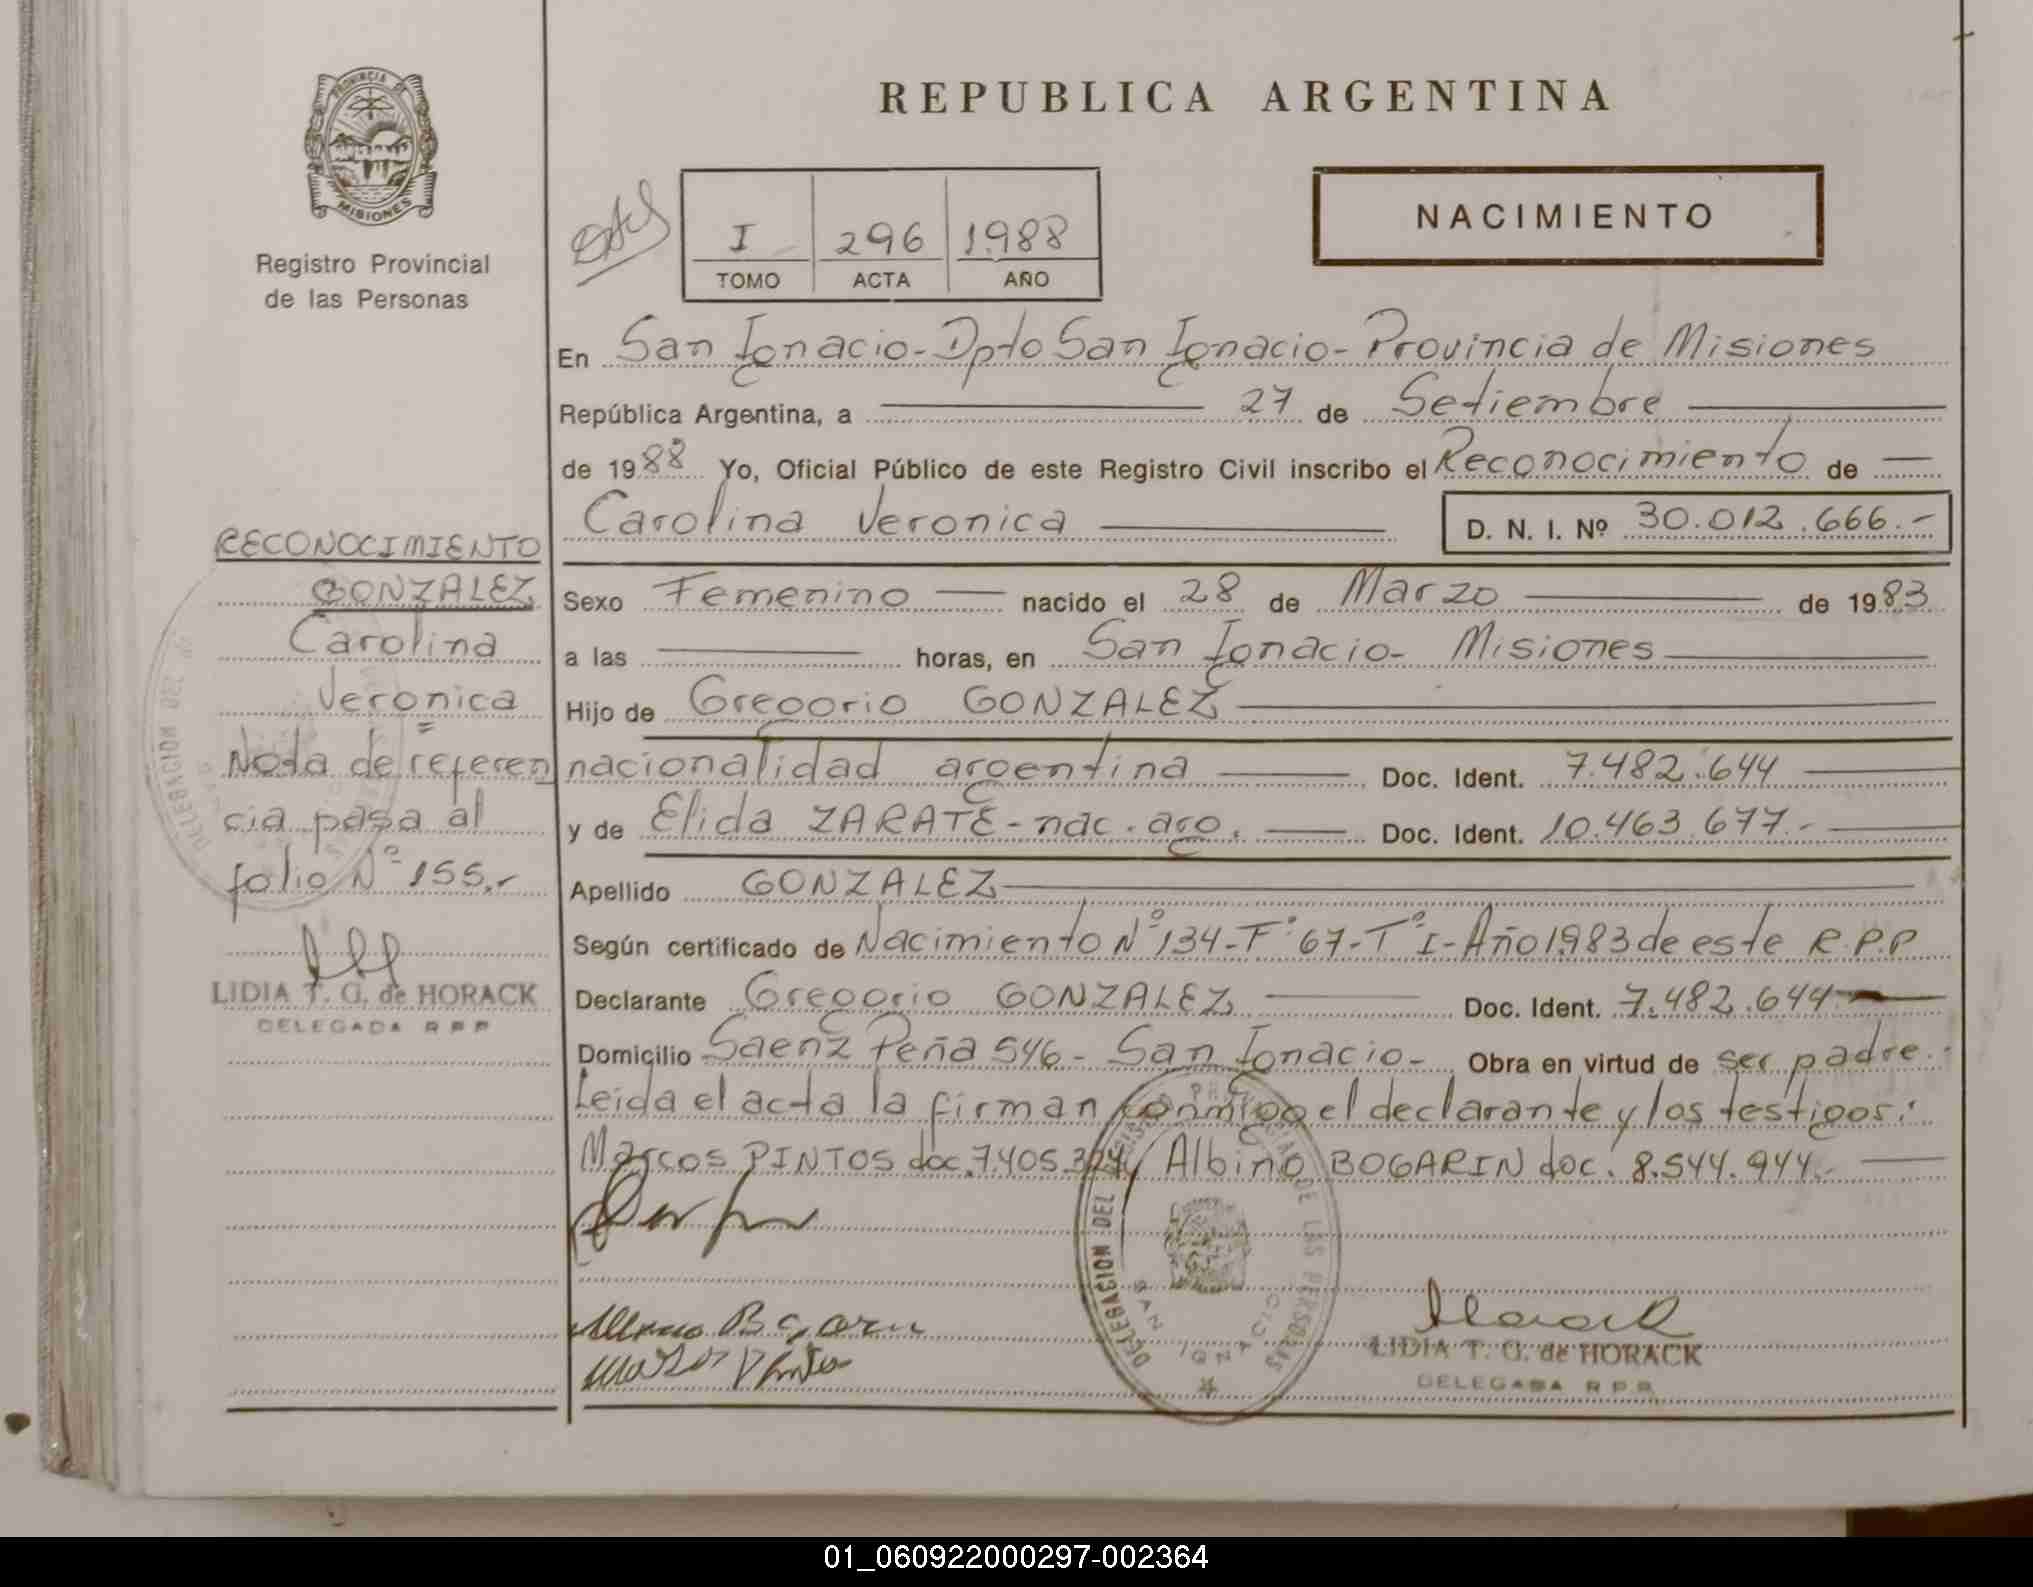 PROVINCIA DE
MISIONES
Registro Provincial
de las Personas
REPUBLICA ARGENTINA
NACIMIENTO
I 296 1.988
TOMO ACTA AÑO
En San Ignacio - Dpto San Ignacio - Provincia de Misiones
República Argentina, a 27 de Setiembre
de 1988 Yo, Oficial Público de este Registro Civil inscribo el Reconocimiento de
Carolina Veronica D. N. I. Nº 30.012.666.-
Sexo Femenino nacido el 28 de Marzo de 1983
a las horas, en San Ignacio - Misiones
Hijo de Gregorio GONZALEZ
nacionalidad argentina Doc. Ident. 7.482.644
y de Elida ZARATE - nac. arg. Doc. Ident. 10.463.677.-
Apellido GONZALEZ
Según certificado de Nacimiento Nº 134 - Fº 67 - Tº I - Año 1.983 de este R.P.P
Declarante Gregorio GONZALEZ Doc. Ident. 7.482.644.-
Domicilio Saenz Peña 546 - San Ignacio - Obra en virtud de ser padre.-
Leida el acta la firman conmigo el declarante y los testigos:
Marcos PINTOS doc. 7.405.324 / Albino BOGARIN doc. 8.544.944.-
RECONOCIMIENTO
GONZALEZ
Carolina
Veronica
Nota de referen
cia pasa al
folio Nº 155.-
LIDIA T. G. de HORACK
DELEGADA R P P
DELEGACION DEL REGISTRO PROVINCIAL DE LAS PERSONAS
SAN IGNACIO
Horack
LIDIA T. G. de HORACK
DELEGADA R P P
01_060922000297-002364